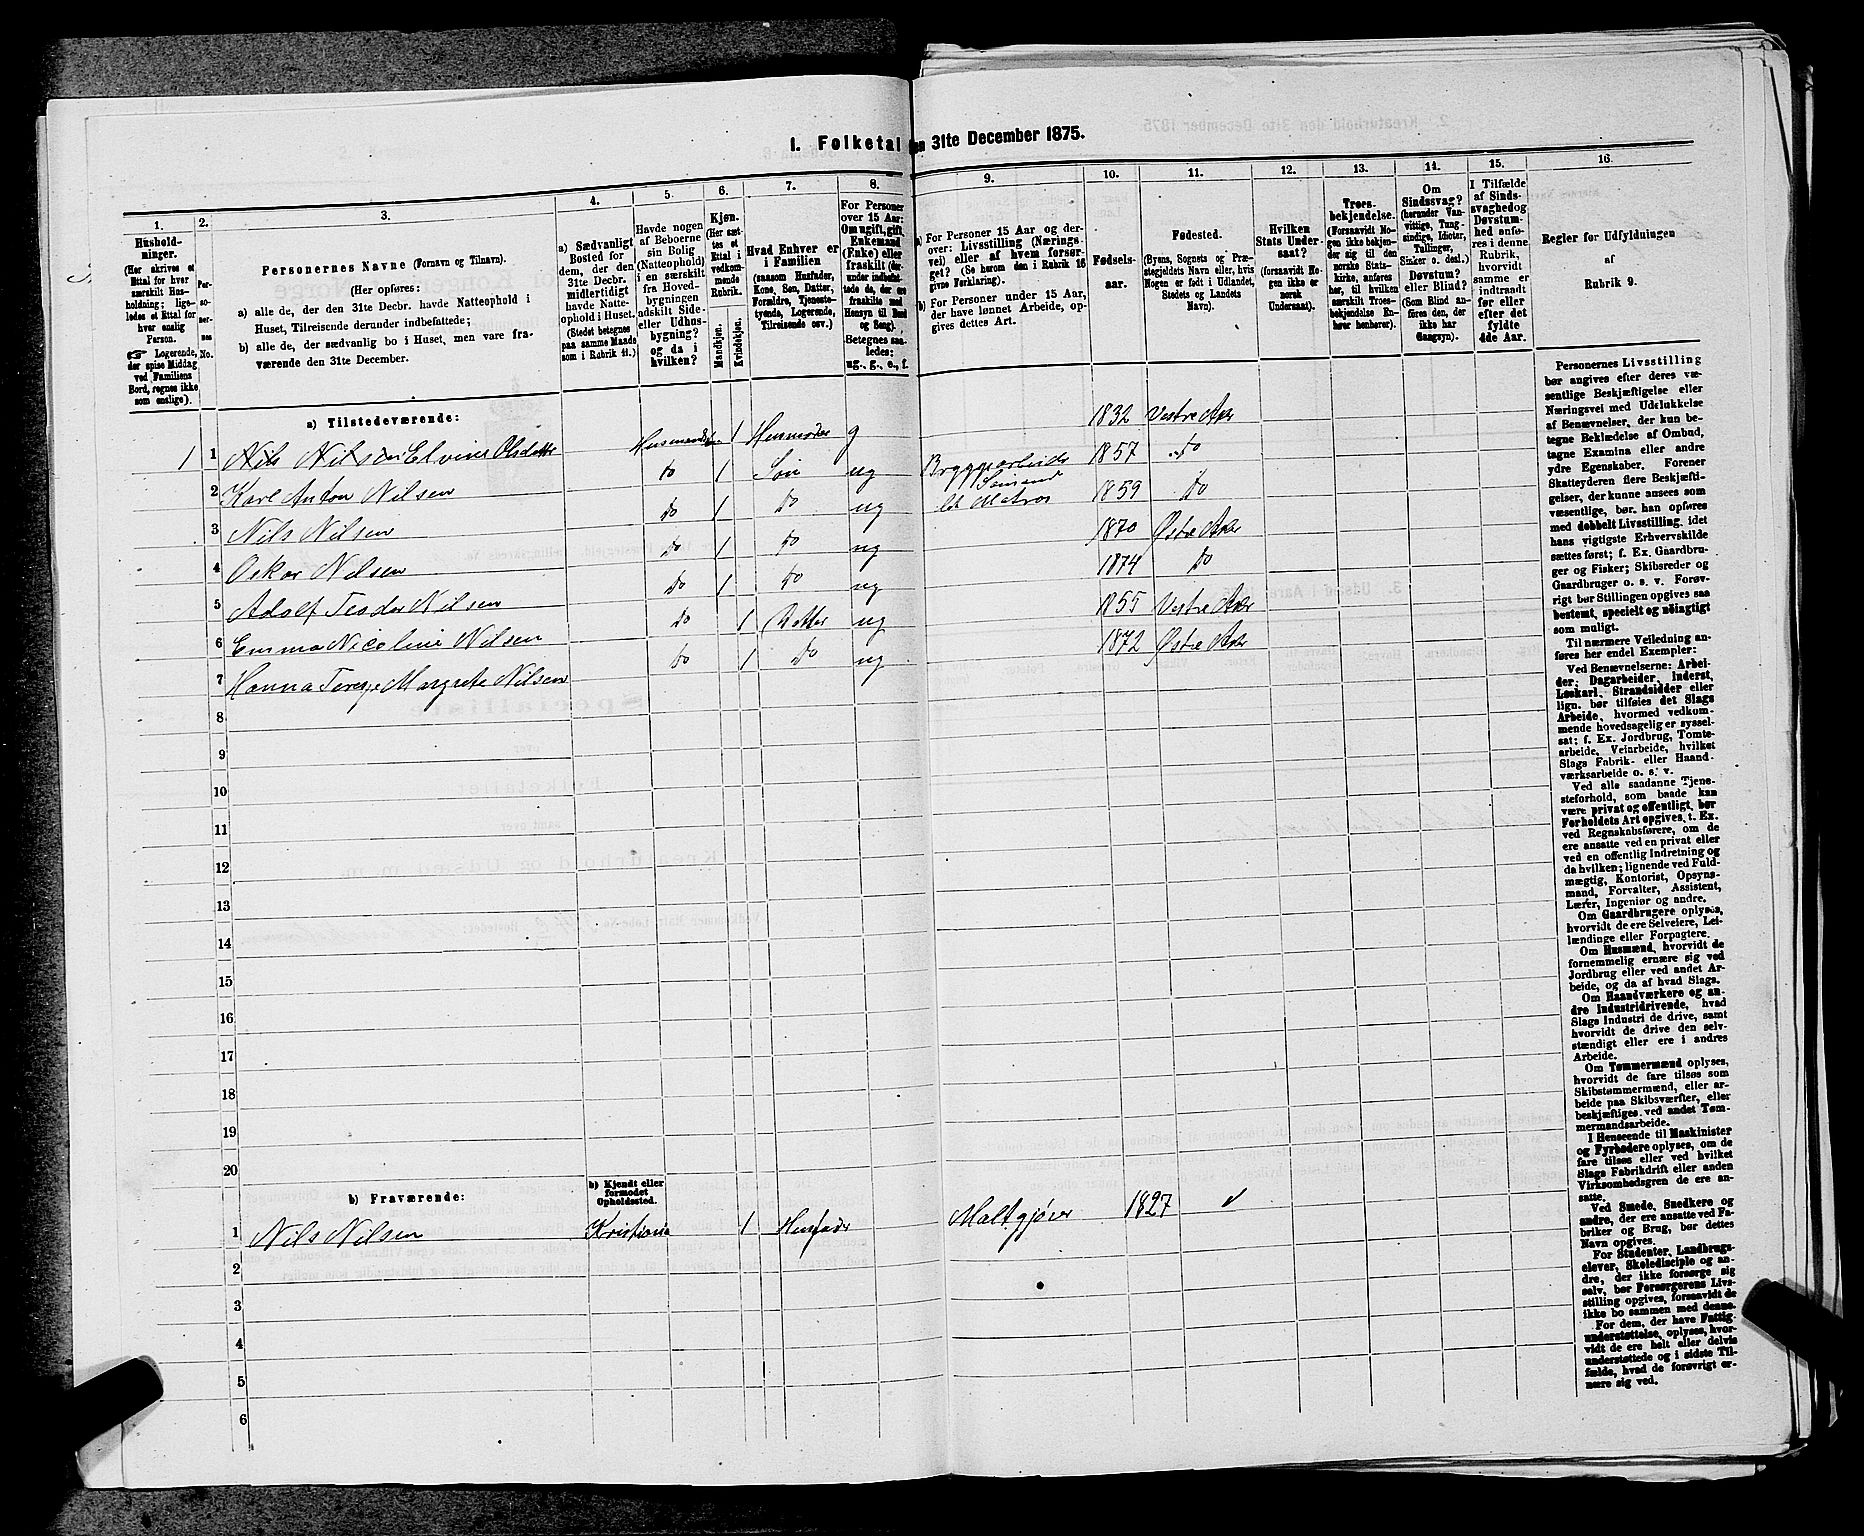 I. Folketal den 31te December 1875.
1. 2. 3. 4. 5. 6. 7. 8. 9. 10. 11. 12. 13. 14. 15. 16.
Hushold-
ninger.
(Her skrives et
Ettal for hver
særskilt Hus-
holdning; lige-
ledes et Ettal for
hver enslig
Person.
☞ Logerende,
der spise Middag
ved Familiens
Bord, regnes ikke
som enslige).
Per-
so-
ner-
nes
No.
Personernes Navne (Fornavn og Tilnavn).
(Her opføres:
a) alle de, der den 31te Decbr. havde Natteophold i
Huset, Tilreisende derunder indbefattede;
b) alle de, der sædvanlig bo i Huset, men vare fra-
værende den 31te December.
a) Sædvanligt
Bosted for
dem, der den
31te Decbr.
midlertidigt
havde Natte-
ophold i Huset.
(Stedet betegnes
paa samme Maade
som i Rubrik 11.)
Havde nogen
af Beboerne
sin Bolig
(Natteophold)
i en særskilt
fra Hoved-
bygningen
adskilt Side-
eller Udhus-
bygning?
og da i
hvilken?
Kjøn.
(Her sæt-
tes et
Ettal i
vedkom-
mende
Rubrik.
Mandkjøn.
Kvindekjøn.
Hvad Enhver er
i Familien
(saasom Husfader,
Kone, Søn, Datter,
Forældre, Tjeneste-
tyende, Logerende,
Tilreisende osv.)
For Personer
over 15 Aar:
Om ugift, gift,
Enkemand
(Enke) eller
fraskilt (der-
under indbefat-
tede de, der ere
fraskilte med
Hensyn til Bord
og Seng).
Betegnes saa-
ledes:
ug., g., e., f.
a) For Personer 15 Aar og der-
over: Livsstilling (Nærings-
vei) eller af hvem forsør-
get? (Se herom den i Rubrik 16
givne Forklaring).
b) For Personer under 15 Aar,
der have lønnet Arbeide, op-
gives dettes Art.
Fødsels-
aar.
Fødested.
(Byens, Sognets og Præ-
stegjeldets Navn eller, hvis
Nogen er født i Udlandet,
Stedets og Landets
Navn).
Hvilken
Stats Under-
saat?
(forsaavidt No-
gen ikke er
norsk
Undersaat).
Troes-
bekjendelse.
(Forsaavidt No-
gen ikke bekjen-
der sig til den
norske Stats-
kirke, anføres
her, til hvilken
særskilt Troes-
bekjendelse En-
hver henhører).
Om
Sindssvag?
(herunder Van-
vittige, Tung-
sindige, Idioter,
Tullinger,
Sinker o. desl.)
Døvstum?
eller Blind?
(Som Blind an-
føres den, der
ikke har
Gangsyn).
I Tilfælde
af Sinds-
svaghed og
Døvstum-
hed anfø-
res i denne
Rubrik,
hvorvidt
samme er
indtraadt
før eller
efter det
fyldte
4de Aar.
Regler før Udfyldningen
af
Rubrik 9.
a) Tilstedeværende:
1 1 Nils Nilsen Elvine Olsdatter Husmandsst 1 Husmoder g 1832 Vestre Aker
2 Karl Anton Nilsen do 1 Søn ug Bryggearbeider 1857 do
3 Nils Nilsen do 1 do ug Sømand Matros 1859 do
4 Oskar Nilsen do 1 do ug 1870 Østre Aker
5 Adolf Teodor Nilsen do 1 do ug 1874 do
6 Emma Nicoline Nilsen do 1 Datter ug 1855 Vestre Aker
7 Hanna Terese Margrete Nilsen do 1 do ug 1872 Østre Aker
8
9
10
11
12
13
14
15
16
17
18
19
20
b) Fraværende:
b) Kjendt eller
formodet
Opholdssted.
1 Nils Nilsen Kristiania 1 Husfader Maltgjører 1827
2
3
4
5
6
Personernes Livsstilling
bør angives efter deres væ-
sentlige Beskjæftigelse eller
Næringsvei med Udelukkelse
af Benævnelser, der kun be-
tegne Beklædelse af Ombud,
tagne Examina eller andre
ydre Egenskaber. Forener
Skatteyderen flere Beskjæfti-
gelser, der kunne ansees som
væsentlige, bør han opføres
med dobbelt Livsstilling, idet
hans vigtigste Erhvervskilde
sættes først; f. Ex. Gaardbru-
ger og Fisker; Skibsreder og
Gaardbruger o. s. v. Forøv-
rigt bør Stillingen opgives saa
bestemt, specielt og nøiagtigt
som muligt.
Til nærmere Veiledning an-
føres her endel Exempler:
Ved Benævnelserne: Arbei-
der, Dagarbeider, Inderst,
Løskarl, Strandsidder eller
lign. bør tilføies det Slags
Arbeide, hvormed vedkom-
mende hovedsagelig er syssel-
sat; f. Ex. Jordbrug, Tomte-
arbeide, Veiarbeide, hvilket
Slags Fabrik- eller Haand-
værksarbeide o. s. v.
Ved alle saadanne Tjene-
steforhold, som baade kan
være privat og offentligt, bør
Forholdets Art opgives, t. Ex.
ved Regnskabsførere, om de
ere ansatte ved en privat eller
ved en offentlig Indretning og
da hvilken; lignende ved Fuld-
mægtig, Kontorist, Opsyns-
mand, Forvalter, Assistent,
Lærer, Ingeniør og andre.
Om Gaardbrugere oplyses,
hvorvidt de ere Selveiere, Lei-
lændinge eller Forpagtere.
Om Husmænd, hvorvidt de
fornemmelig ernære sig ved
Jordbrug eller ved andet Ar-
beide, og da af hvad Slags.
Om Haandværkere og an-
dre Industridrivende, hvad
Slags Industri de drive, samt
hvorvidt de drive den selv-
stændigt eller ere i andres
Arbeide.
Om Tømmermænd oplyses,
hvorvidt de fare tilsøs som
Skibstømmermænd, eller ar-
beide paa Skibsværfter, eller
beskjæftiges ved andet Tøm-
mermandsarbeide.
I Henseende til Maskinister
og Fyrbødere oplyses, om de
fare tilsøs eller ved hvilket
Slags Fabrikdrift eller anden
Virksomhedsgren de ere an-
satte.
Ved Smede, Snedkere og
andre, der ere ansatte ved Fa-
briker og Brug, bør dettes
Navn opgives.
For Studenter, Landbrugs-
elever, Skoledisciple og an-
dre, der ikke forsørge sig
selv, bør Forsørgerens Livs-
stilling opgives, forsaavidt de
ikke bo sammen med denne.
For dem, der have Fattig-
understøttelse, oplyses, hvor-
vidt de ere helt eller delvis
understøttede og i sidste Til-
fælde, hvad de forøvrigt er-
nære sig ved.